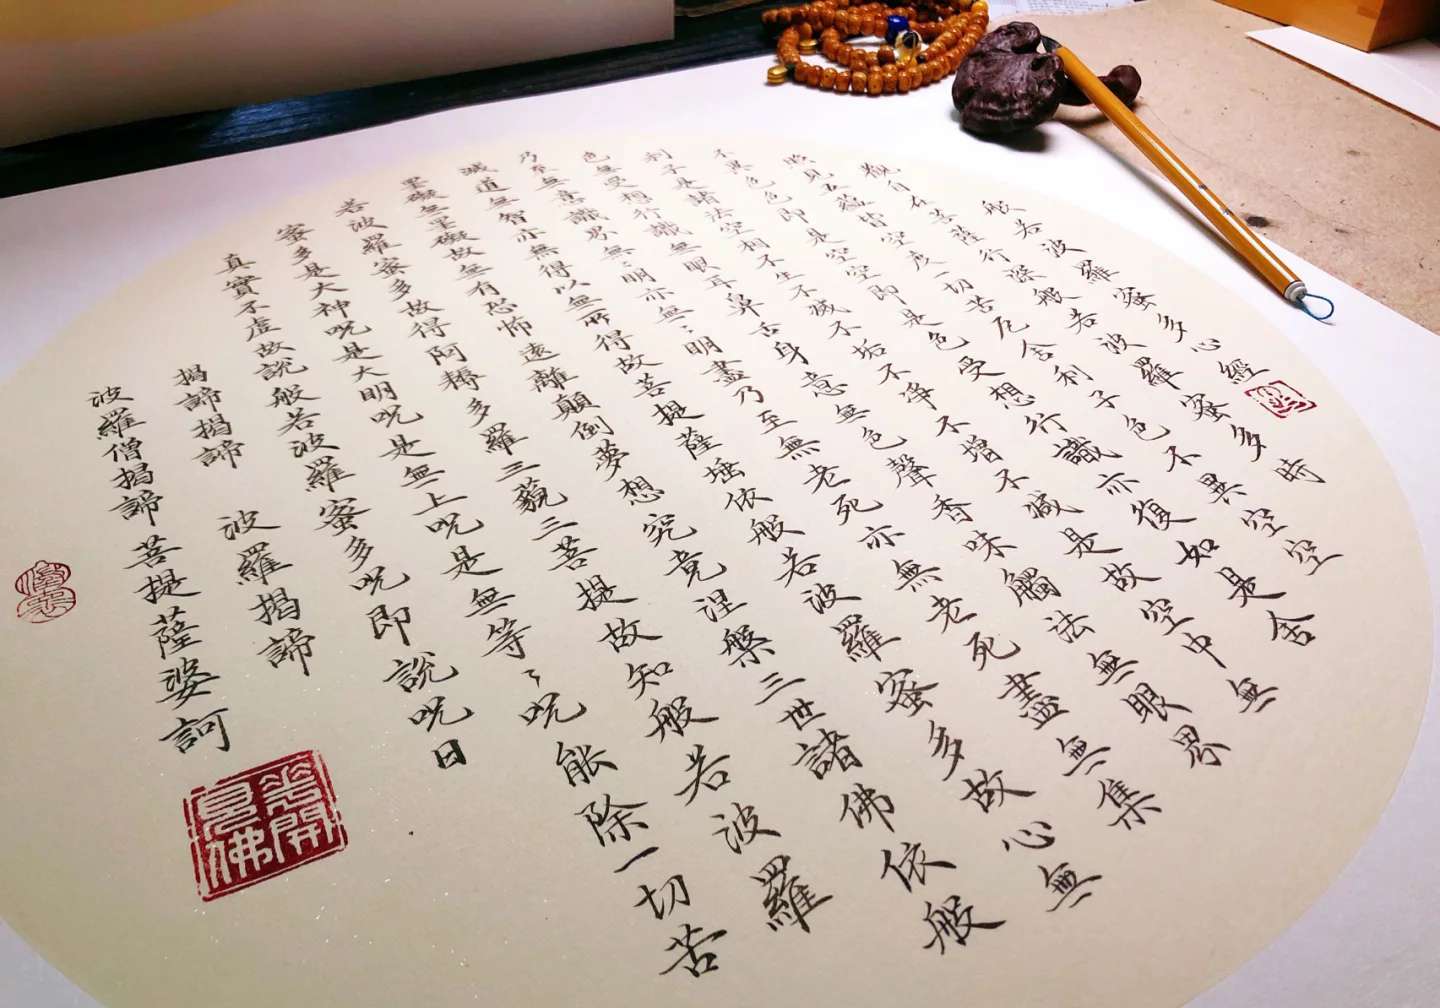 般若波羅蜜多心經
觀自在菩薩行深般若波羅蜜多時
照見五蘊皆空度一切苦厄舍利子色不異空空
不異色色即是空空即是色受想行識亦復如是舍
利子是諸法空相不生不滅不垢不淨不增不減是故空中無
色無受想行識無眼耳鼻舌身意無色聲香味觸法無眼界
乃至無意識界無〻明亦無〻明盡乃至無老死亦無老死盡無集
滅道無智亦無得以無所得故菩提薩埵依般若波羅蜜多故心無
罣礙無罣礙故無有恐怖遠離顛倒夢想究竟涅槃三世諸佛依般
若波羅蜜多故得阿耨多羅三藐三菩提故知般若波羅
蜜多是大神呪是大明呪是無上呪是無等〻呪能除一切苦
真實不虛故說般若波羅蜜多呪即說呪曰
揭諦揭諦 波羅揭諦
波羅僧揭諦菩提薩婆訶
花開見佛